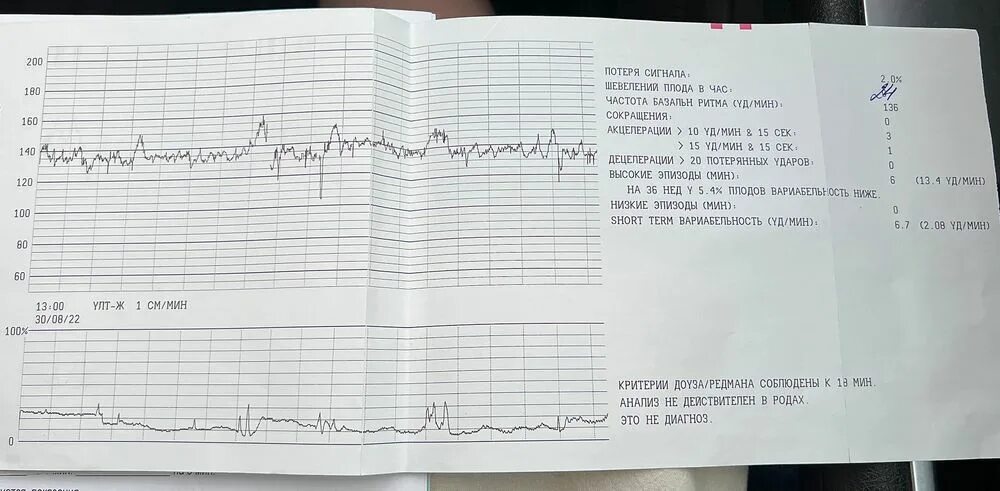 200
180
160
140
120
100
80
60
13:00 УЛТ-Ж 1 СМ/МИН
30/08/22
100%
0
ПОТЕРЯ СИГНАЛА: 2.0%
ШЕВЕЛЕНИЙ ПЛОДА В ЧАС:
ЧАСТОТА БАЗАЛЬН РИТМА (УД/МИН): 136
СОКРАЩЕНИЯ: 0
АКЦЕЛЕРАЦИИ > 10 УД/МИН & 15 СЕК: 3
> 15 УД/МИН & 15 СЕК: 1
ДЕЦЕЛЕРАЦИИ > 20 ПОТЕРЯННЫХ УДАРОВ: 0
ВЫСОКИЕ ЭПИЗОДЫ (МИН): 6 (13.4 УД/МИН)
НА 36 НЕД У 5.4% ПЛОДОВ ВАРИАБЕЛЬНОСТЬ НИЖЕ.
НИЗКИЕ ЭПИЗОДЫ (МИН): 0
SHORT TERM ВАРИАБЕЛЬНОСТЬ (УД/МИН): 6.7 (2.08 УД/МИН)
КРИТЕРИИ ДОУЗА/РЕДМАНА СОБЛЮДЕНЫ К 18 МИН.
АНАЛИЗ НЕ ДЕЙСТВИТЕЛЕН В РОДАХ.
ЭТО НЕ ДИАГНОЗ.